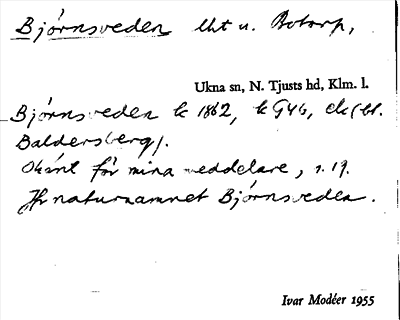 Björnsveden lht u. Botorp,
Ukna sn, N. Tjusts hd, Klm. l.
Björnsveden k 1862, k G46, ek (bl.
Baldersberg).
Okänt för mina meddelare, s. 19.
Jfr naturnamnet Björnsveden.
Ivar Modéer 1955